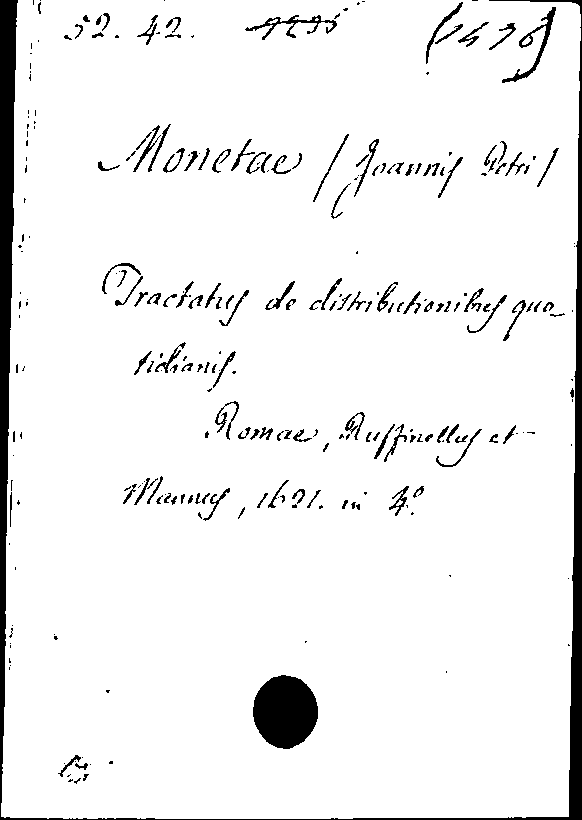 52. 42. (1476)
Monetae (Joannis Petri)
Tractatus de distributionibus quo-
tidianis.
Romae, Ruffinellus et
Mannus, 1621. in 4º.